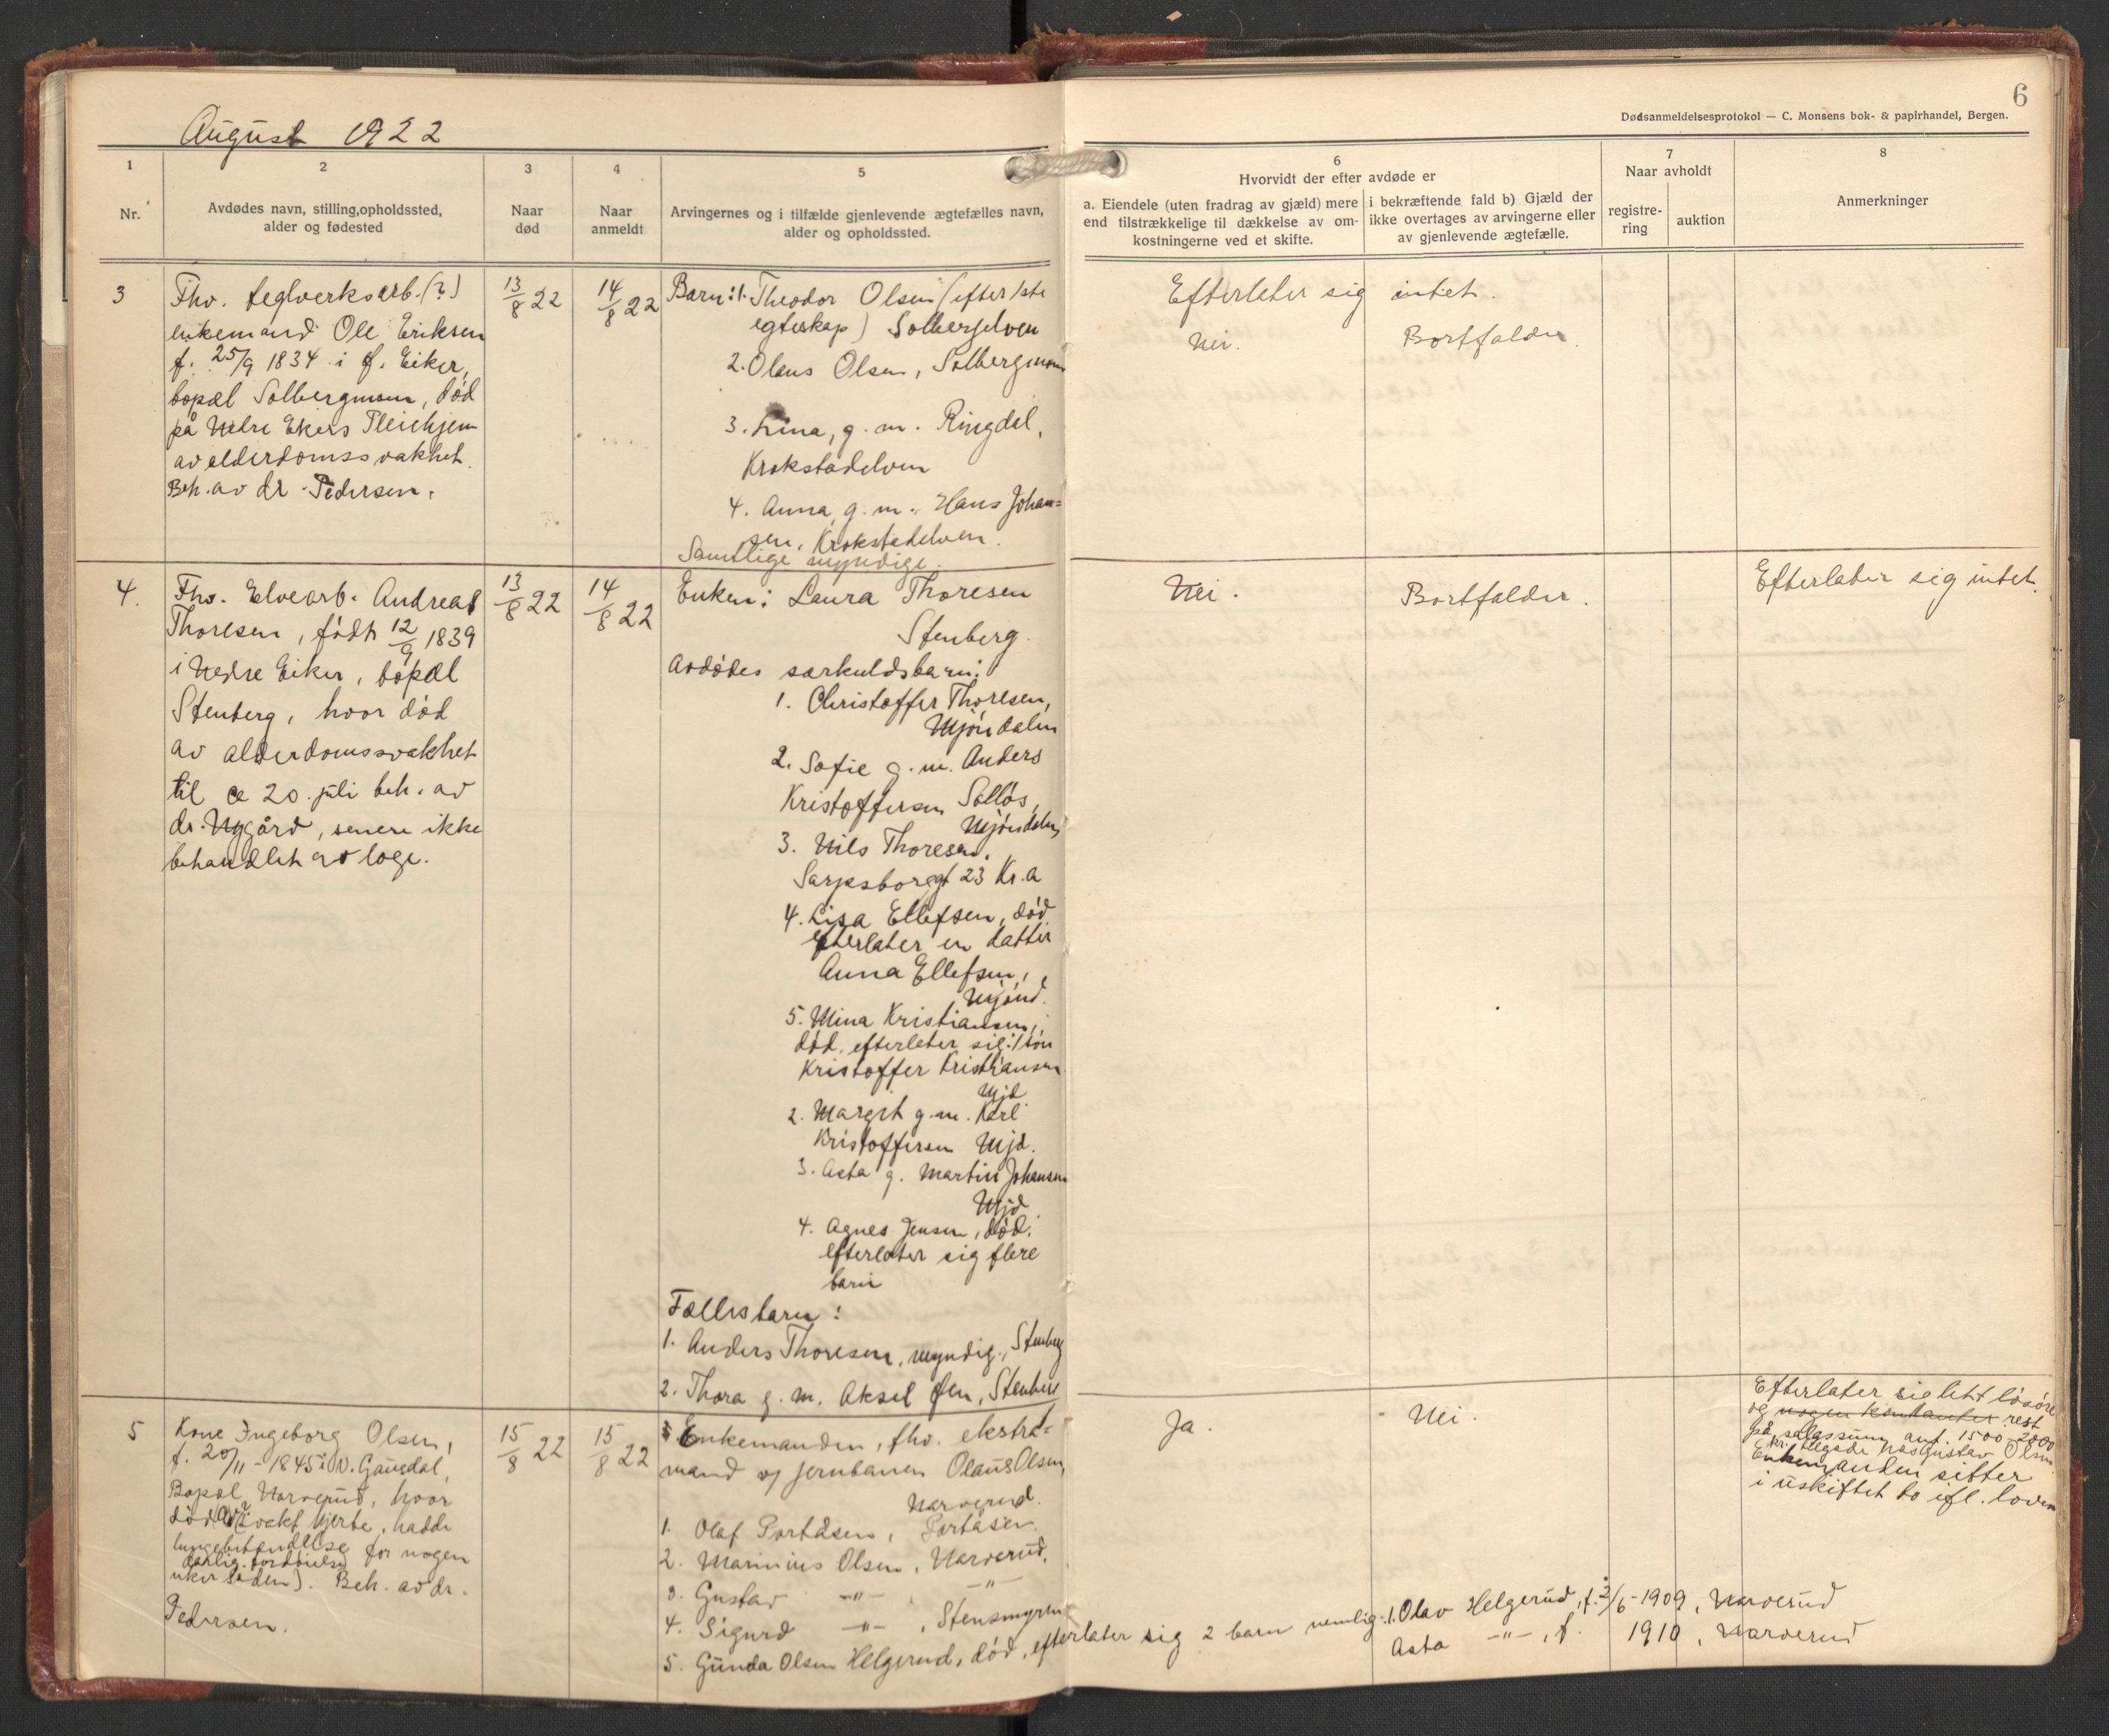 August 1922
6
Dødsanmeldelsesprotokol — C. Monsens bok- & papirhandel, Bergen.
1
Nr.
2
Avdødes navn, stilling, opholdssted,
alder og fødested
3
Naar
død
4
Naar
anmeldt
5
Arvingernes og i tilfælde gjenlevende ægtefælles navn,
alder og opholdssted.
6
Hvorvidt der efter avdøde er
a. Eiendele (uten fradrag av gjæld) mere
end tilstrækkelige til dækkelse av om-
kostningerne ved et skifte.
i bekræftende fald b) Gjæld der
ikke overtages av arvingerne eller
av gjenlevende ægtefælle.
7
Naar avholdt
registre-
ring
auktion
8
Anmerkninger
3
Fhv. teglverksarb. (?)
enkemand Ole Eriksen
f. 25/9 1834 i Ø. Eiker,
bopæl Solbergmoen, død
på Nedre Ekers Pleiehjem
av alderdomssvakhet.
Beh. av dr. Pedersen.
13/8 22
14/8 22
Barn: 1. Theodor Olsen (efter 1ste
egteskap) Solbergelven
2. Olaus Olsen, Solbergmoen
3. Lina, g. m. Ringdal,
Krokstadelven
4. Anna, g. m. Hans Johan=
sen, Krokstadelven.
Samtlige myndige.
Efterlater sig intet.
Nei.
Bortfalder.
4.
Fhv. Elvearb. Andreas
Thoresen, født 12/9 1839
i Nedre Eiker, bopæl
Stenberg, hvor død
av alderdomssvakhet
til ca 20. juli beh. av
dr. Nygård, senere ikke
behandlet av læge.
13/8 22
14/8 22
Enken: Laura Thoresen
Stenberg.
Avdødes særkuldsbarn:
1. Christoffer Thoresen,
Mjøndalen
2. Sofie g. m. Anders
Kristoffersen Solløs,
Mjøndalen
3. Nils Thoresen,
Sarpsborggt 23 Kr.a
4. Lisa Ellefsen, død
efterlater en datter
Anna Ellefsen,
Mjønd.
5. Mina Kristiansen,
død, efterlater sig: 1 søn
Kristoffer Kristiansen
Mjd.
2. Margit g. m. Karl
Kristoffersen Mjd.
3. Asta g. Martin Johansen
Mjd.
4. Agnes Jensen, død.
efterlater sig flere
barn
Fællesbarn:
1. Anders Thoresen, myndig, Stenberg
2. Thora g. m. Aksel Øen, Stenberg
Nei.
Bortfalder.
Efterlater sig intet.
5
Kone Ingeborg Olsen,
f. 20/11 - 1845 i V. Gausdal,
Bopæl Narverud, hvor
død av svakt hjerte, hadde
lungebetændelse for nogen
dårlig fordøielse
uker siden). Beh. av dr.
Pedersen.
15/8 22
15/8 22
Enkemanden, fhv. ekstra=
mand v/ jernbanen Olaus Olsen,
Narverud.
1. Olaf Portåsen, Portåsen.
2. Marinius Olsen, Narverud.
3. Gustav —"— —"—
4. Sigurd —"—, Stensmyren
5. Gunda Olsen Helgerud, død, efterlater sig 2 barn nemlig: 1. Olav Helgerud, f. 2/6-1909, Narverud
Asta —"—, f. 1910, Narverud
Ja.
Nei.
Efterlater sig litt løsøre
og nogen kontanter rest
på salgssum ant. 1500-2000
kr. tilgode hos Gustav Olsen.
Enkemanden sitter
i uskiftet bo ifl. loven